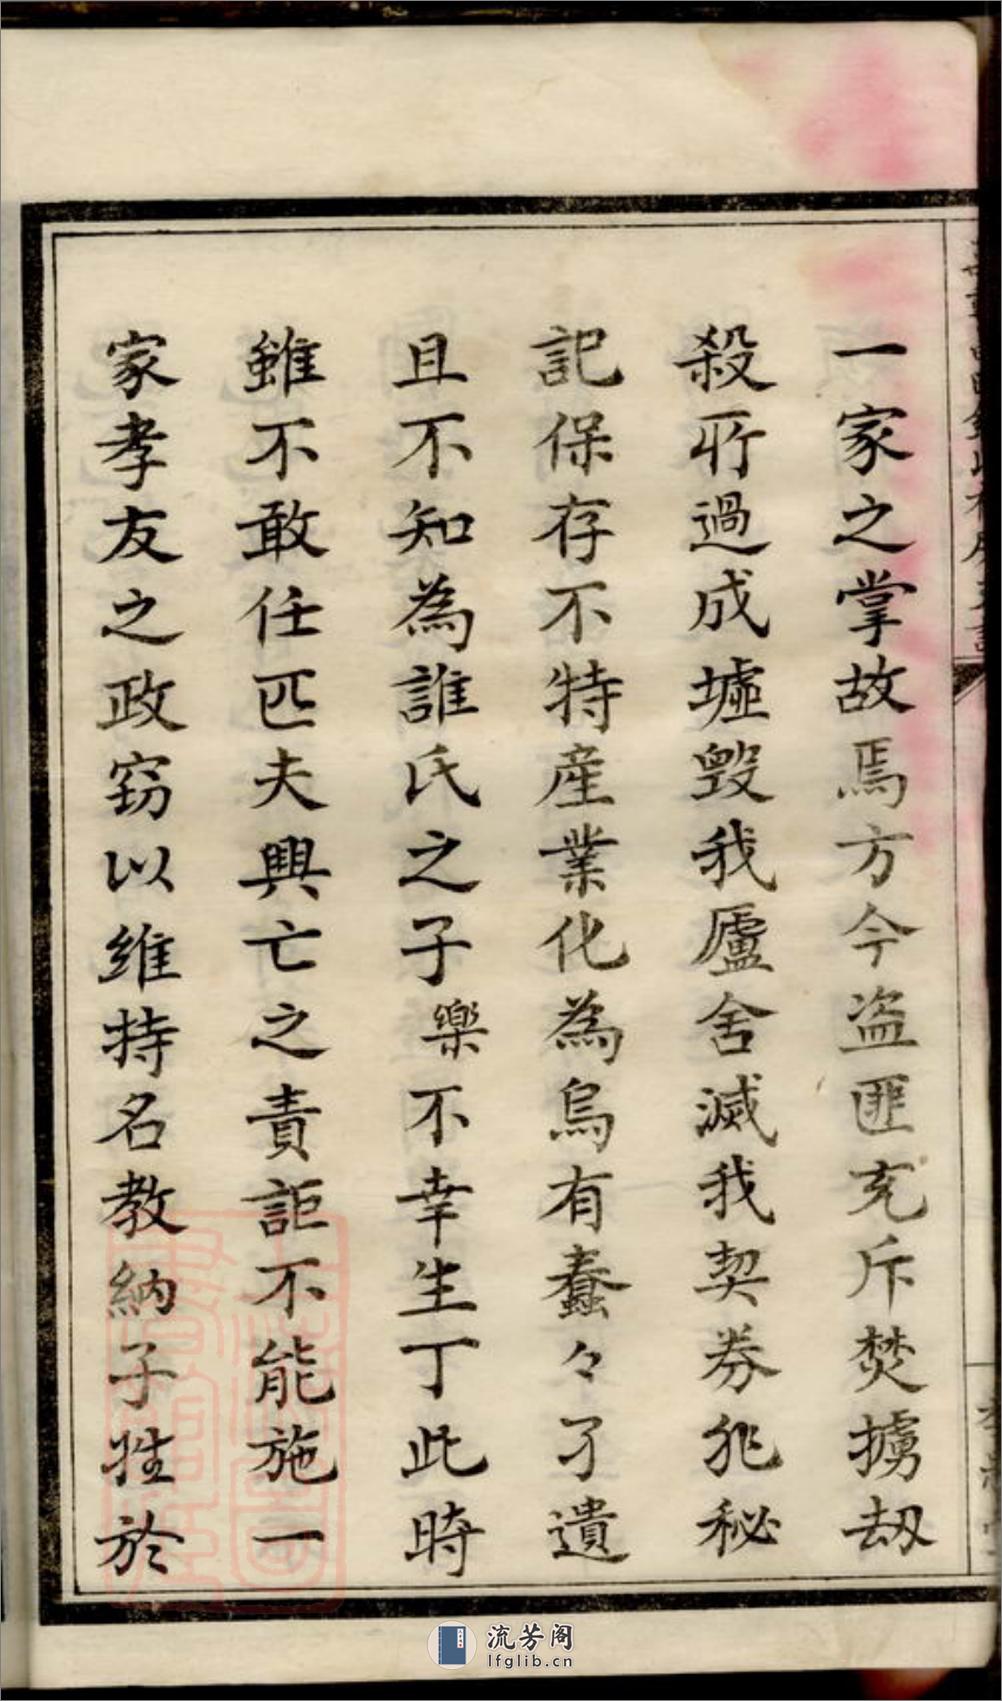 一家之掌故焉方今盗匪充斥焚擄刼
殺所過成墟毀我廬舍滅我契券非秘
記保存不特產業化為烏有蠢々孑遺
且不知為誰氏之子樂不幸生丁此時
雖不敢任匹夫興亡之責詎不能施一
家孝友之政窃以維持名教納子姓於
流芳阁
lfglib.cn